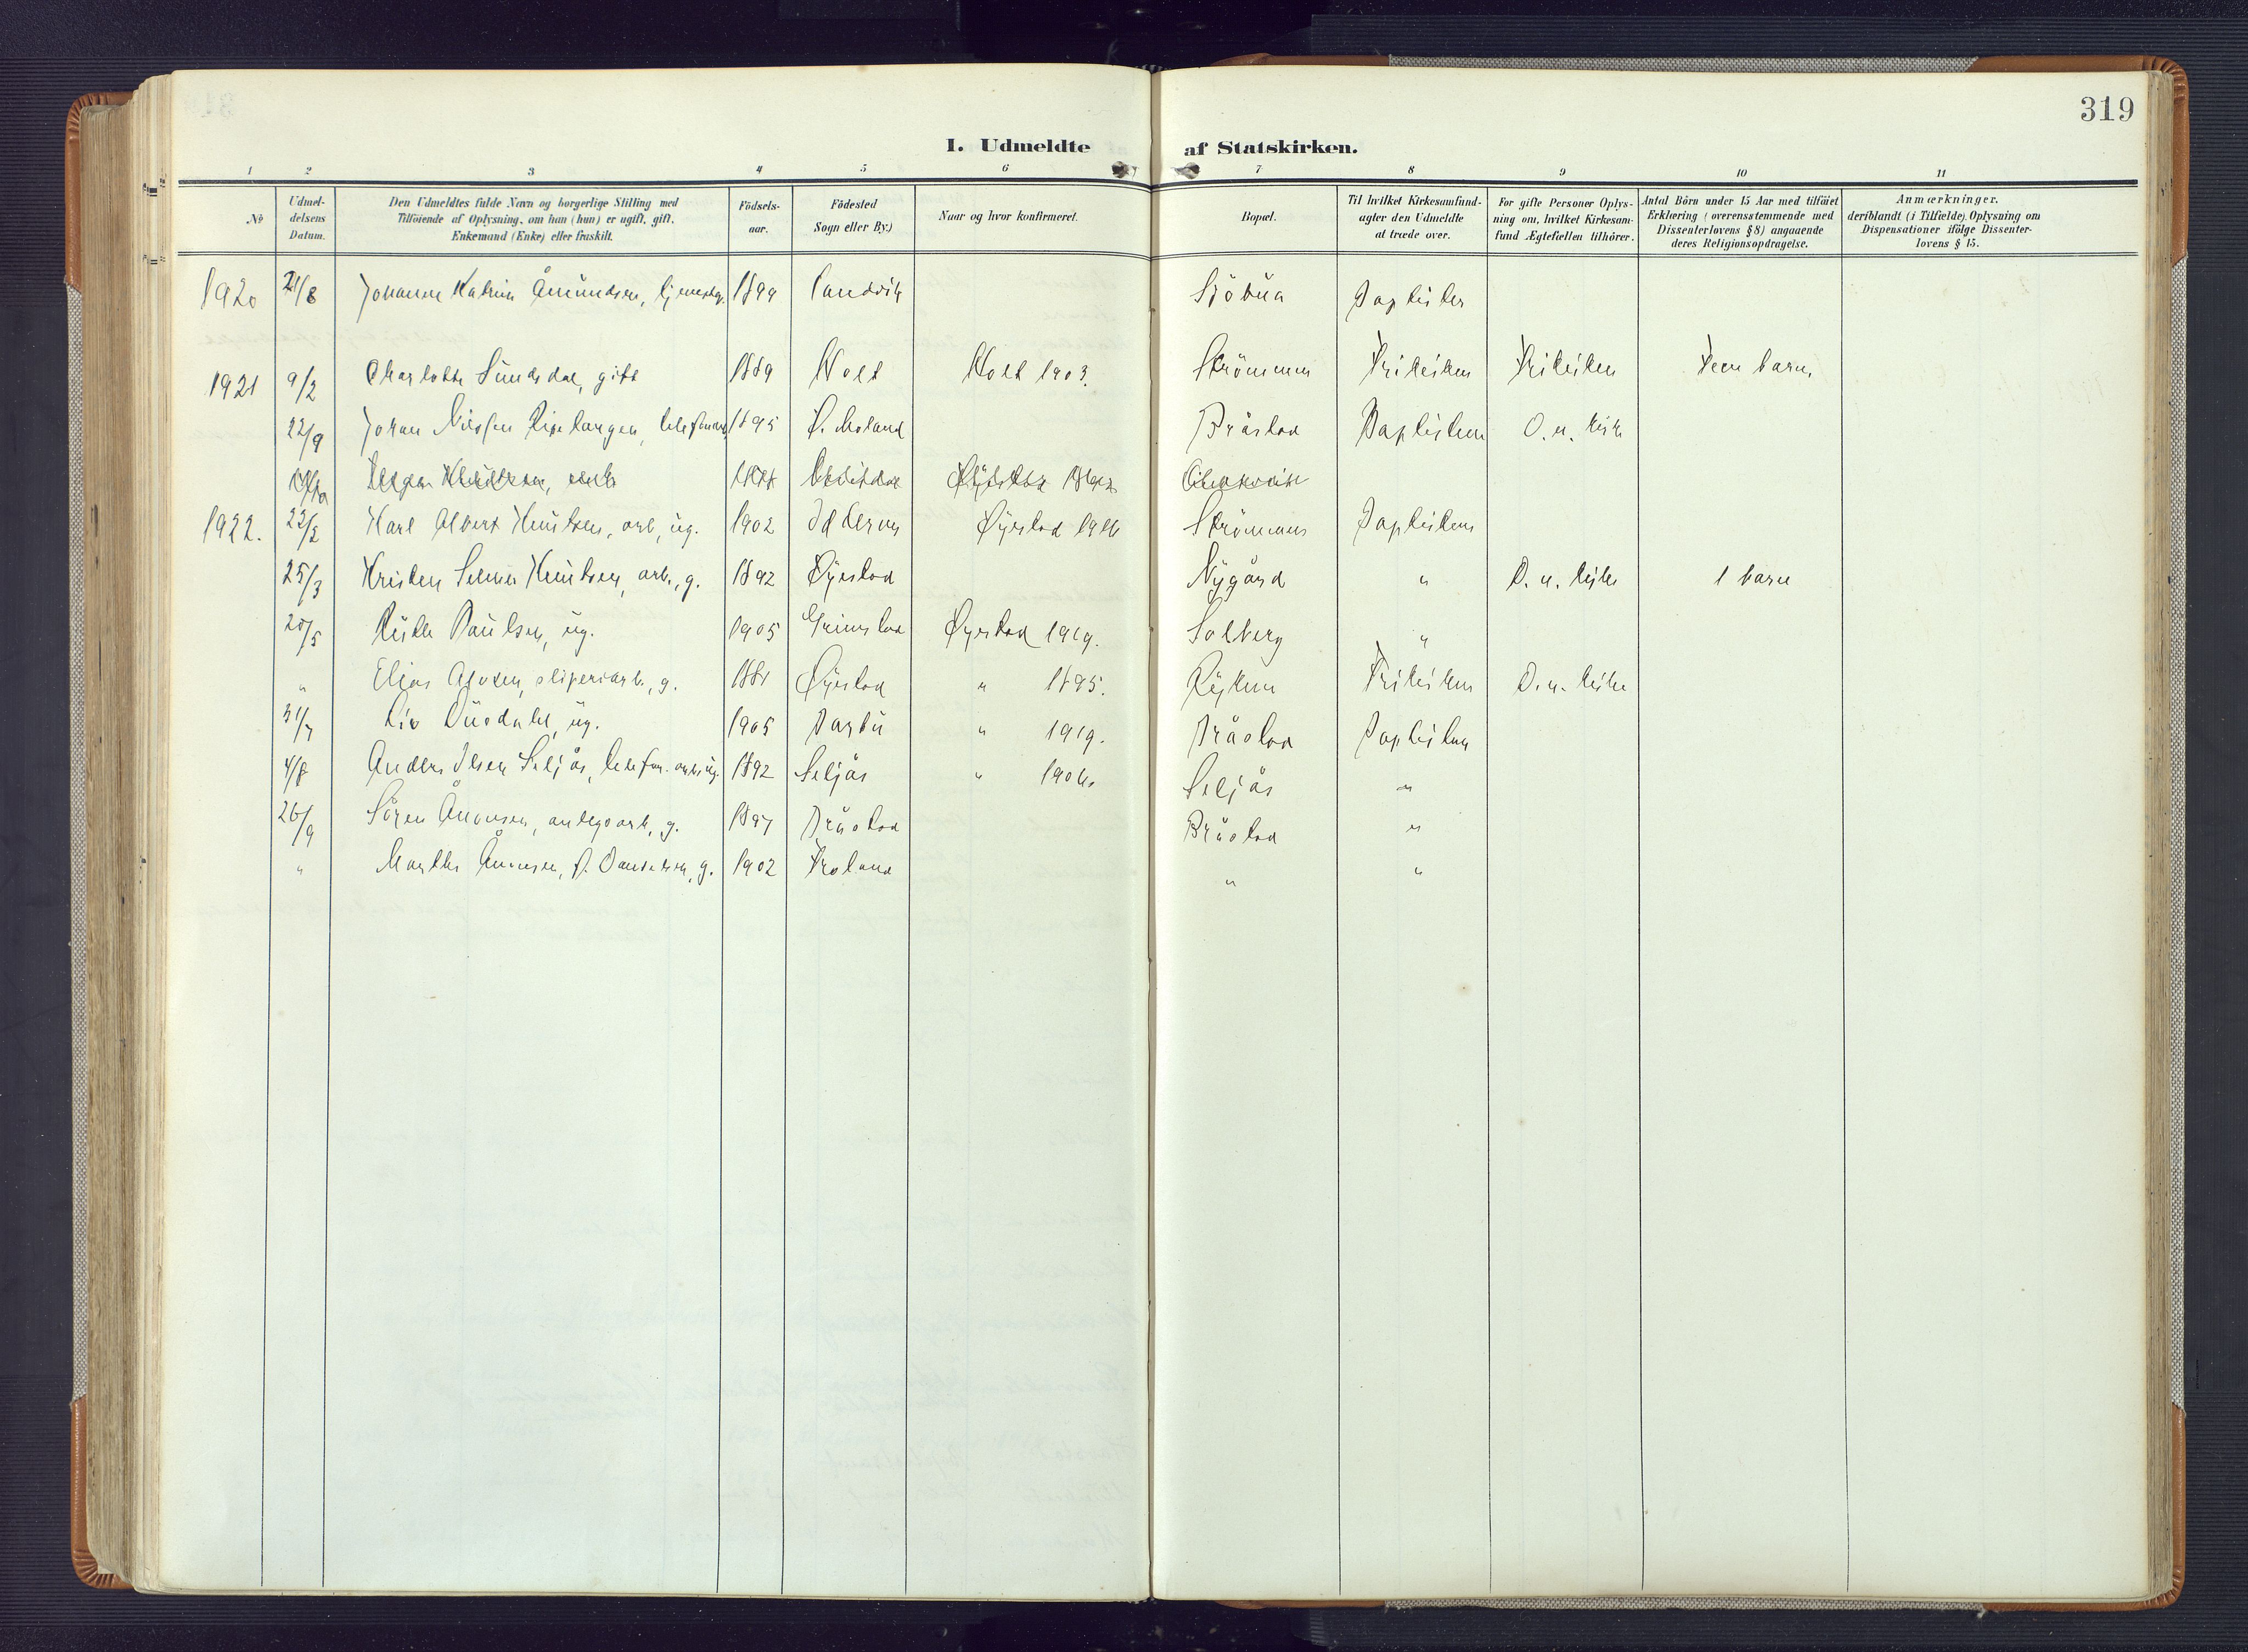 319
1. Udmeldte af Statskirken.
1 2 3 4 5 6 7 8 9 10 11
№
Udmel-
delsens
Datum.
Den Udmeldtes fulde Navn og borgerlige Stilling med
Tilføiende af Oplysning, om han (hun) er ugift, gift,
Enkemand (Enke) eller fraskilt.
Födsels-
aar.
Födested
Sogn eller By.)
Naar og hvor konfirmeret.
Bopæl.
Til hvilket Kirkesamfund
agter den Udmeldte
at træde over.
For gifte Personer Oplys-
ning om, hvilket Kirkesam-
fund Ægtefællen tilhörer.
Antal Börn under 15 Aar med tilföiet
Erklæring (overensstemmende med
Dissenterlovens § 8) angaaende
deres Religionsopdragelse.
Anmærkninger.
deriblandt (i Tilfælde) Oplysning om
Dispensationer ifölge Dissenter-
lovens § 15.
1920 21/8 Johanne Katrin Åmundsen, 1899 Landvik Sjöbua Baptisten
1921 9/2 Charlotte Sundsdal, gift 1889 Holt Holt 1903. Strömmen Frikirken Frikirken Fem barn
22/9 Johan Nilsen 1895 Ø. Moland Bråstad Baptisten D. n. kirke
1922. 22/2 Karl Albert Knutsen, arb., ug. 1902 Øyestad 1916 Strömmen Baptisten
25/3 Kristen Selmer Knutsen, arb., g. 1892 Øyestad Nygård " D. n. kirke 1 barn
20/5 Ruth Paulsen, ug. 1905 Grimstad Øyestad 1919. Solberg "
" Elias Olsen, sliperiarb., g. 1881 Øyestad " 1895. Rykene Frikirken D. n. kirke
31/7 Liv Dusdahl, ug. 1905 Barbu " 1919. Bråstad Baptisten
4/8 Anders Olsen Seljås, telefon. arb. ug. 1892 Seljås " 1906. Seljås "
26/9 Sören Åmonsen, anlegsarb., g. 1897 Bråstad Bråstad "
" Marthe Åmonsen, f. Danielsen, g. 1902 Froland " "